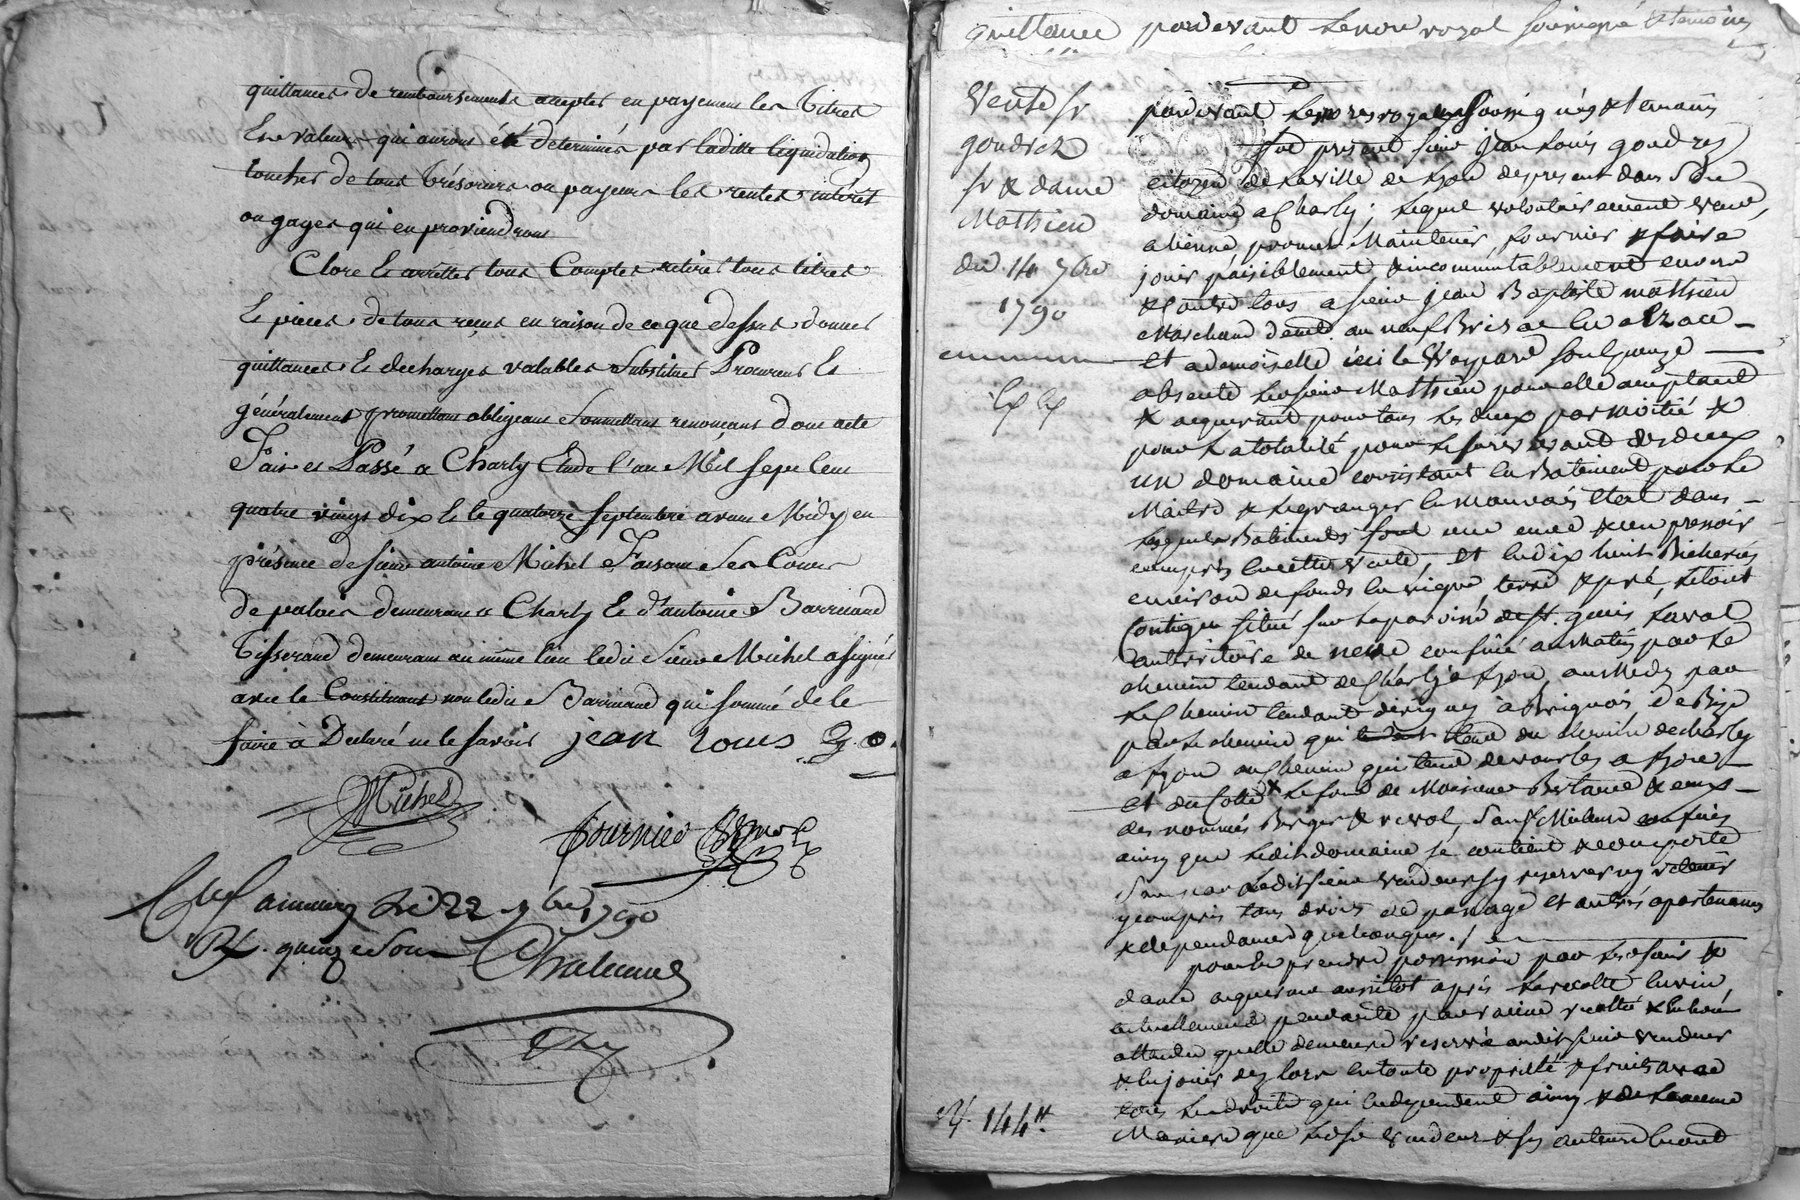 quittances de remboursements accepter en payement les titres
Et valeurs qui auront été determinés par laditte liquidation
toucher de tous trésoriers ou payeurs les rentes interêt
ou gages qui en proviendront
Clore Et arrêtter tous Comptes retirer tous titres
Et pieces de tous reçus en raison de ce que dessus donner
quittances Et decharges valables Substituer Procureur Et
généralement promettant obligeant Soumettant renonçant dont acte
Fait et Passé a Charly Etude l'an Mil sept cent
quatre vingt dix Et le quatorze septembre avant Midy en
présence de sieur antoine Michel
de palais demeurant a Charly Et d'antoine Barriand
Tisserand demeurant au même lieu ledit Sieur Michel a signé
avec le Constituant non ledit Barriand qui sommé de le
faire à Declaré ne le savoir jean louis
Michel
fournier
le 22 7bre 1790
R. quinze sous

quittance pardevant le nore royal soussigné & temoins
Vente sr
goudrez
sr & dame
Mathieu
du 14 7bre
1790
pardevant les nores royaux soussignés & temoins
fut présent sieur jean louis goudrez
citoyen de la ville de lyon de present dans son
domaine a Charly; lequel volontairement vend,
alienne promet Maintenir, fournir & faire
jouir paisiblement & incommutablement envers
& contre tous a sieur jean Baptiste mathieu
Marchand demt. au neuf Brisac en alzace
et a demoiselle
absente le sieur Mathieu pour elle acceptant
& acquerant pour tous les deux par moitié &
pour la totalité pour le survivant des deux
un domaine consistant en Batiment pour le
Maitre & le granger en mauvais Etat dans
lesquels Batiments sont une cuve & un pressoir
compris en cette vente, et en dix huit Bicherées
environ de fonds en vigne, terre & pré, le tout
Contigu situé sur la paroisse de st. genis Laval
au territoire de confiné au Matin par le
chemin tendant de Charly a lyon, au Midy par
le chemin tendant de à Brignais de Bize
par le chemin qui tend du chemin de charly
a lyon au chemin qui tend de vourles a lyon
et du soir le fond de Monsieur & ceux
des nommés Berger & revol, sauf Meilleurs confins
ainsy que ledit domaine se contient & comporte
sans par ledit sieur vendeur s'y reserver ny retenir
y compris tous droits de passage et autres apartenances
& dependances quelconques./.
pour en prendre possession par les sieur &
dame acquereurs aussitot après la recolte en vin,
actuellement pendante par racine
attendu qu'elle demeure reservée audit sieur vendeur
& en jouir dez lors en toute propriété & fruits avec
tous les droits qui en dependent ainsy & de la meme
Maniere que ledit sr vendeur & ses auteurs en ont
144